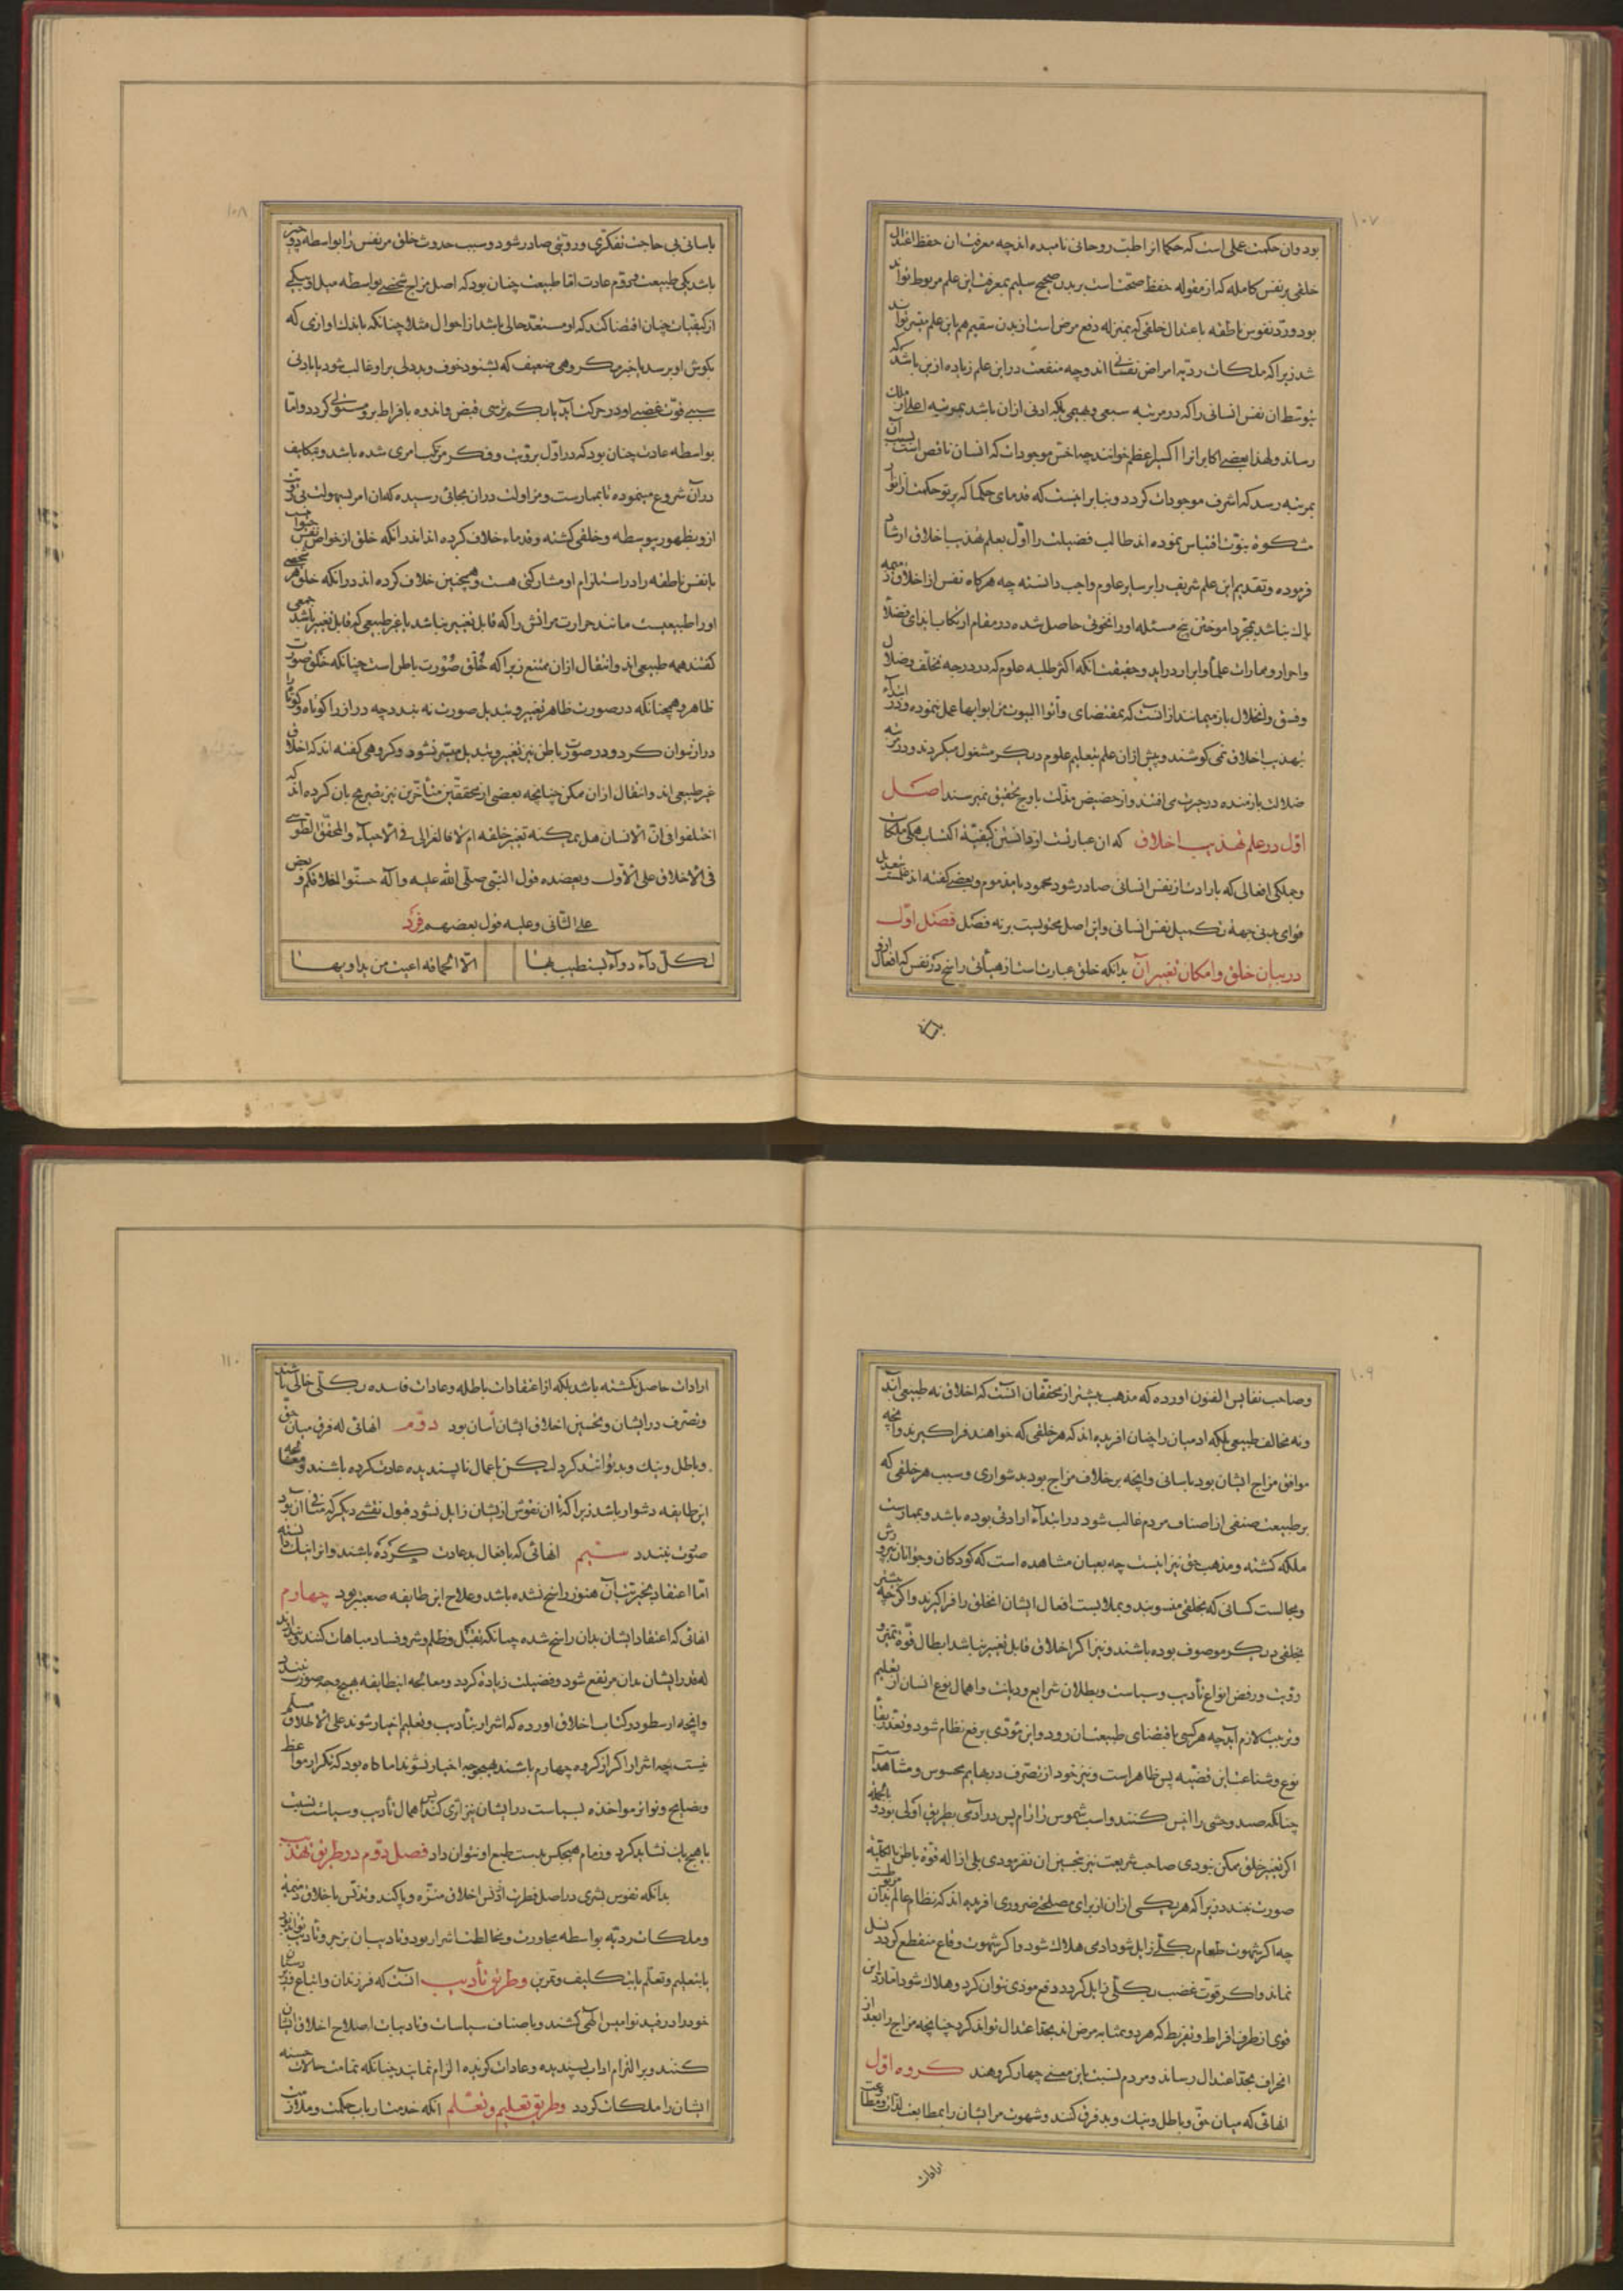 ۱۰۷
بود و ان حکمت عملی است که حکما انرا طب روحانی نامیده اند چه معرفت ان حفظ اعتدال
خلقی بر نفس کامله که از مقوله حفظ صحتست بر بدن صحیح سلیم بمعرفت این علم مربوط تواند
بود و رد نفوس ناطقه باعتدال خلقی که بمنزله دفع مرض است از بدن سقیم هم باین علم میسر تواند
شد زیرا که ملکات ردیه امراض نفسانی اند و چه منفعت در این علم زیاده ازین باشد که
بتوسط ان نفس انسانی را که در مرتبه سبعی و بهیمی بلکه ادنی ازان باشد بمرتبه اعلی از ملک
رساند و لهذا بعضی اکابر انرا اکسیر اعظم خوانند چه اخس موجودات که انسان ناقص است بسبب آن
بمرتبه رسد که اشرف موجودات گردد و بنابر اینست که قدمای حکما که پرتو حکمت از انوار
مشکوة نبوت اقتباس نموده اند طالب فضیلت را اول بعلم تهذیب اخلاق ارشاد
فرموده و تقدیم این علم شریف را بر سایر علوم واجب دانسته چه هرگاه نفس از اخلاق ذمیمه
پاک نباشد بمجرد اموختن پنج مسئله او را نخوتی حاصل شده در مقام ارتکاب ایذای فضلا
و احرار و ممارات علما و ابرار در اید و حقیقت انکه اکثر طلبه علوم که در درجه تخلف و ضلال
و فسق و انحلال باز میمانند از انست که بمقتضای وأتوا البیوت من ابوابها عمل ننموده و در ابتداء
تهذیب اخلاق نمی کوشند و پیش ازان علم بتعلیم علوم دیگر مشغول میگردند و در تیه
ضلالت بازمنده در حیرت می افتند و از حضیض مذلت باوج تحقیق نمیرسند اصل
اول در علم تهذیب اخلاق که ان عبارتست از دانستن کیفیة اکتساب همگی ملکات
و جملگی افعالی که بارادت از نفس انسانی صادر شود محمود یا مذموم و بعضی گفته اند علمست بتعدیل
قوای بدنی جهة تکمیل نفس انسانی و این اصل محتویست بر نه فصل فصل اول
در بیان خلق و امکان تغییر آن بدانکه خلق عبارتست از هیأتی راسخ در نفس که افعال ازو
۱۰۸
باسانی بی حاجت تفکری و رویتی صادر شود و سبب حدوث خلق مر نفس را بواسطه دو چیز
باشد یکی طبیعت و دوم عادت اما طبیعت چنان بود که اصل مزاج شخصی بواسطه میل او بیکی
از کیفیات چنان اقتضا کند که او مستعد حالی باشد از احوال مثلا چنانکه باندک اوازی که
بگوش او برسد یا خبر مکروهی ضعیف که بشنود خوف و بددلی بر او غالب شود یا بادنی
سببی قوت غضبی او در حرکت آید یا بکم ترسی قبض و اندوه بافراط برو مستولی گردد و اما
بواسطه عادت چنان بود که در اول برویت و فکر مرتکب امری شده باشد و بتکلیف
در آن شروع مینموده تا بممارست و مزاولت دران بجائی رسیده که ان امر بسهولت بی رویت
ازو بظهور پیوسته و خلقی گشته و قدماء خلاف کرده اند اندر انکه خلق از خواص نفس حیوانیست
یا نفس ناطقه را در استلزام او مشارکتی هست و همچنین خلاف کرده اند در انکه خلق هر شخصی
او را طبیعیست مانند حرارت مر اتش را که قابل تغییر نباشد یا غیر طبیعی که قابل تغییر باشد جمعی
گفتند همه طبیعی اند و انتقال ازان ممتنع زیرا که خُلق صورت باطن است چنانکه خَلق صورت
ظاهر و همچنانکه در صورت ظاهر تغییر و تبدیل صورت نه بندد چه دراز را کوتاه و کوتاه را
دراز نتوان کرد و در صورت باطن نیز تغییر و تبدیل میسر نشود و گروهی گفته اند که اخلاق
غیر طبیعی اند و انتقال ازان ممکن چنانچه بعضی از محققین متأخرین نیز تصریح بان کرده اند که
اختلفوا فی ان الانسان هل یمکنه تغییر خلقه ام لا فالغزالی فی الاحیاء و المحقق الطوسی
فی الاخلاق علی الاول و یعضده قول النبی صلی الله علیه و آله حسنوا اخلاقکم و بعض
علی الثانی و علیه قول بعضهم فرد
لکل داء دواء یستطب بها
الا الحماقة اعیت من یداویها
۱۰۹
و صاحب نفایس الفنون اورده که مذهب بیشتر از محققان انست که اخلاق نه طبیعی اند
و نه مخالف طبیعی بلکه ادمیان را چنان افریده اند که هر خلقی که خواهند فرا گیرند و انچه
موافق مزاج ایشان بود باسانی و انچه بر خلاف مزاج بود بدشواری و سبب هر خلقی که
بر طبیعت صنفی از اصناف مردم غالب شود در ابتداء ارادتی بوده باشد و بممارست
ملکه گشته و مذهب حق نیز اینست چه بعیان مشاهده است که کودکان و جوانان بپرورش
و مجالست کسانی که بخلقی منسوبند و بملابست افعال ایشان انخلق را فرا گیرند و اگرچه پیشتر
بخلقی دیگر موصوف بوده باشند و نیز اگر اخلاق قابل تغییر نباشد ابطال قوة تمییز و
رؤیت و رفض انواع تأدیب و سیاست و بطلان شرایع و دیانت و اهمال نوع انسان از تعلیم
و تربیت لازم آید چه هر کسی باقتضای طبیعت ان رود و این مؤدی برفع نظام شود و تعذر بقا
نوع و شناعت این قضیه پس ظاهر است و نیز خود از تصرف در بهایم محسوس و مشاهد است
چنانکه صید وحشی را انیس کنند و اسب شموس را رام پس در ادمی بطریق اولی بود و بالجمله
اگر تغییر خلق ممکن نبودی صاحب شریعت نیز بتحسین ان نفرمودی بلی ازاله قوة باطن بالکلیه
صورت نبندد زیرا که هر یکی ازان از برای مصلحتی ضروری افریده اند که نظام عالم بدان مربوطست
چه اگر شهوت طعام بکلی زایل شود ادمی هلاک شود و اگر شهوت وقاع منقطع گردد نسل
نماند و اگر قوت غضب بکلی زایل گردد دفع موذی نتوان کرد و هلاک شود اما رد این
قوی از طرف افراط و تفریط که هر دو بمثابه مرض اند بحد اعتدال تواند کرد چنانچه مزاج را بعد از
انحراف بحد اعتدال رساند و مردم نسبت باین معنی چهار گروهند گروه اول
انهائی که میان حق و باطل و نیک و بد فرق کنند و شهوت مر ایشان را بمطابعت لذات و متابعت
ارادات
۱۱۰
ارادات حاصل نگشته باشد بلکه از اعتقادات باطله و عادات فاسده بکلی خالی باشند
و تصرف در ایشان و تحسین اخلاق ایشان آسان بود دوم انهائی که فرق میان حق
و باطل و نیک و بد توانند کرد لیکن باعمال ناپسندیده عادت کرده باشند و معالجه
این طایفه دشوار باشد زیرا که تا ان نقوش از ایشان زایل نشود قبول نقشی دیگر که منافی آن بود
صورت نبندد سیم انهائی که بافعال بد عادت کرده باشند و انرا نیک دانسته
اما اعتقاد بخیریت آن هنوز راسخ نشده باشد و علاج این طایفه صعبتر بود چهارم
انهائی که اعتقاد ایشان بدان راسخ شده چنانکه بقتل و ظلم و شر و فساد مباهات کنند و پندارند
که قدر ایشان بدان مرتفع شود و فضیلت زیاده گردد و معالجه انطایفه بهیچ وجه صورت نبندد
و انچه ارسطو در کتاب اخلاق اورده که اشرار بتأدیب و تعلیم اخیار شوند علی الاطلاق مسلم
نیست چه اشرار اگر از گروه چهارم باشند بهیچوجه اخیار نشوند اما گاه بود که بتکرار مواعظ
و نصایح و تواتر مواخذه بسیاست در ایشان نیز اثری کند پس اهمال تأدیب و سیاست نسبت
با هیچ یک نشاید کرد و زمام هیچکس بدست طبع او نتوان داد فصل دوم در طریق تهذیب
بدانکه نفوس بشری در اصل فطرت از دنس اخلاق منزه و پاکند و تدنس باخلاق ذمیمه
و ملکات ردیه بواسطه مجاورت و مخالطت اشرار بود و تادیب ان بزجر و تأدیب تواند بود
یا بتعلیم و تعلم یا بتکلیف و تمرین و طریق تأدیب انست که فرزندان و اتباع و زیردستان
خود را در قید نوامیس الهی کشند و باصناف سیاسات و تادیبات اصلاح اخلاق ایشان
کنند و بر التزام اداب پسندیده و عادات گزیده الزام نمایند چنانکه تمامت حالات حسنه
ایشان را ملکات گردد و طریق تعلیم و تعلم آنکه خدمت ارباب حکمت و ملازمت